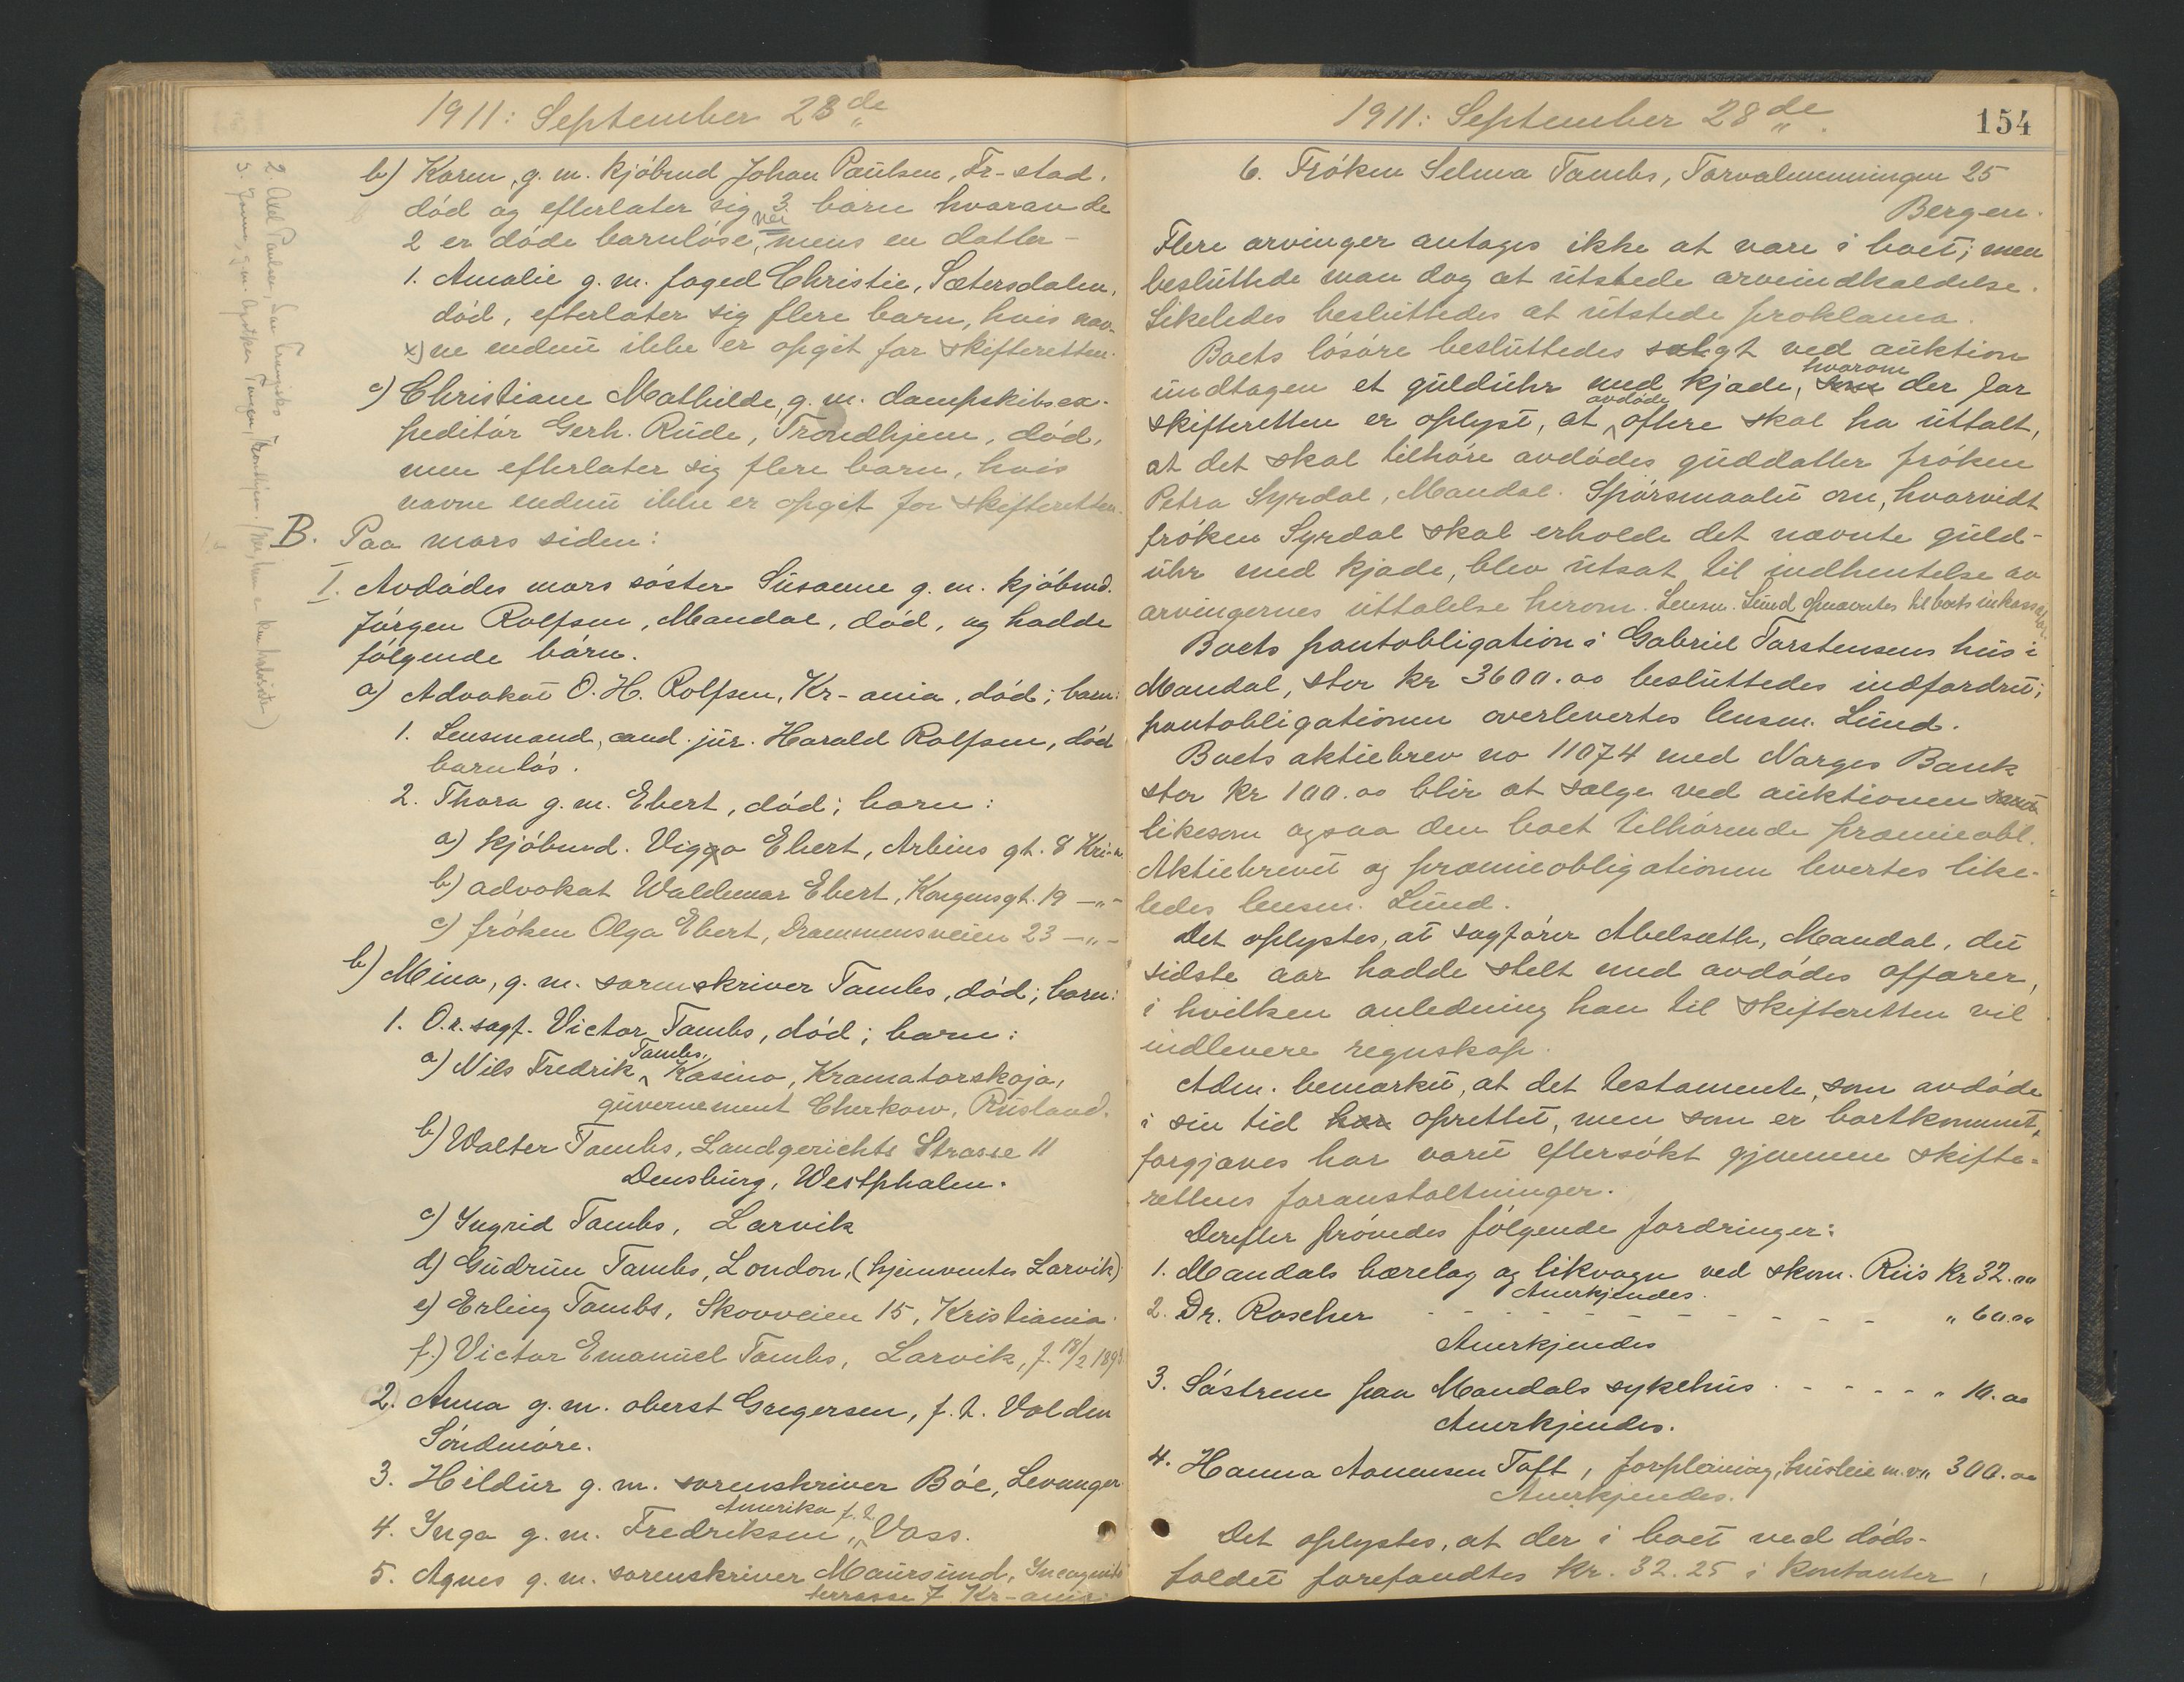 1911: September 28de
b) Karen, g. m. kjöbmd Johan Paulsen, Fr-stad.
död og efterlater sig 3 barn hvorav de
2 er döde barnlöse, nei mens en datter -
1. Amalie g. m. foged Christie, Sætersdalen,
död, efterlater sig flere barn, hvis nav-
x) ne endnu ikke er opgit for skifteretten.
c) Christiane Mathilde, g. m. dampskibsex-
peditör Gerh. Rude, Trondhjem, död,
men efterlater sig flere barn, hvis
navne endnu ikke er opgit for skifteretten.
B. Paa mors siden:
I. Avdödes mors söster Susanne g. m. kjöbmd.
Jörgen Rolfsen, Mandal, död, og hadde
fölgende börn.
a) Advokat O. H. Rolfsen, Kr-ania, död; barn:
1. Lensmand, cand. jur. Harald Rolfsen, död
barnlös.
2. Thora g. m. Ebert, död; barn:
a) kjöbmd. Viggo Ebert, Arbins gt. 8 Kri-a
b) advokat Waldemar Ebert, Kongensgt. 19 -"-
c) fröken Olga Ebert, Drammensveien 23 -"-
b) Mina, g. m. sorenskriver Tambs, död; barn:
1. O.r. sagf. Victor Tambs, död; barn:
a) Nils Fredrik Tambs, Kasino, Kramatorskaja,
guvernement Cherkow, Rusland.
b) Walter Tambs, Landgerichts Strasse 11
Densburg, Westphalen.
c) Yngrid Tambs, Larvik
d) Gudrun Tambs, London, (hjemventes Larvik)
e) Erling Tambs, Skovveien 15, Kristiania.
f.) Victor Emanuel Tambs, Larvik, f. 18/2 189
2. Anna g. m. oberst Gregersen, f. t. Volden
Söndmöre.
3. Hildur g. m. sorenskriver Böe, Levanger.
4. Ynga g. m. Fredriksen, Amerika f. t. Voss.
5. Agnes g. m. sorenskriver Maursund, Yncognito
terrasse 7 Kr-ania.
2. Paulsen, San Fransisko
3. g. m. Tangen, Trondhjem.
1911: September 28de.
154
6. Fröken Selma Tambs, Torvalmenningen 25
Bergen.
Flere arvinger antages ikke at være i boet; men
besluttede man dog at utstede arveindkaldelse.
Likeledes besluttedes at utstede proklama.
Boets lösöre besluttedes solgt ved auktion
undtagen et gulduhr med kjæde, som hvorom der for
skifteretten er oplyst, at avdöde oftere skal ha uttalt,
at det skal tilhöre avdödes guddatter fröken
Petra Syrdal, Mandal. Spörsmaalet om, hvorvidt
fröken Syrdal skal erholde det nævnte guld-
uhr med kjæde, blev utsat til indhentelse av
arvingernes uttalelse herom. Lensm. Lund opnævntes til boets inkassator.
Boets pantobligation i Gabriel Torstensens hus i
Mandal, stor kr 3600.00 besluttedes indfordret;
pantobligationen overlevertes lensm. Lund.
Boets aktiebrev no 11074 med Norges Bank
stor kr 100.00 blir at sælge ved auktionen samt
likesom ogsaa den boet tilhörende præmieobl.
Aktiebrevet og præmieobligationen levertes like-
ledes lensm. Lund.
Det oplystes, at sagförer Abelsæth, Mandal, det
sidste aar hadde stelt med avdödes affærer,
i hvilken anledning han til skifteretten vil
indlevere regnskap.
Adm. bemærket, at det testamente, som avdöde
i sin tid har oprettet, men som er bortkommet,
forgjæves har været eftersökt gjennem skifte-
rettens foranstaltninger.
Derefter prövedes fölgende fordringer:
1. Mandals bærelag og likvogn ved skom. Riis kr 32.00
Anerkjendes.
2. Dr. Roscher - - - - - - - - " 60.00
Anerkjendes
3. Söstrene paa Mandals sykehus - - - - - " 10.00
Anerkjendes.
4. Hanna Aanensen Toft, forpleining, husleie m. v. " 300.00
Anerkjendes.
Det oplystes, at der i boet ved döds-
faldet forefandtes kr. 32.25 i kontanter